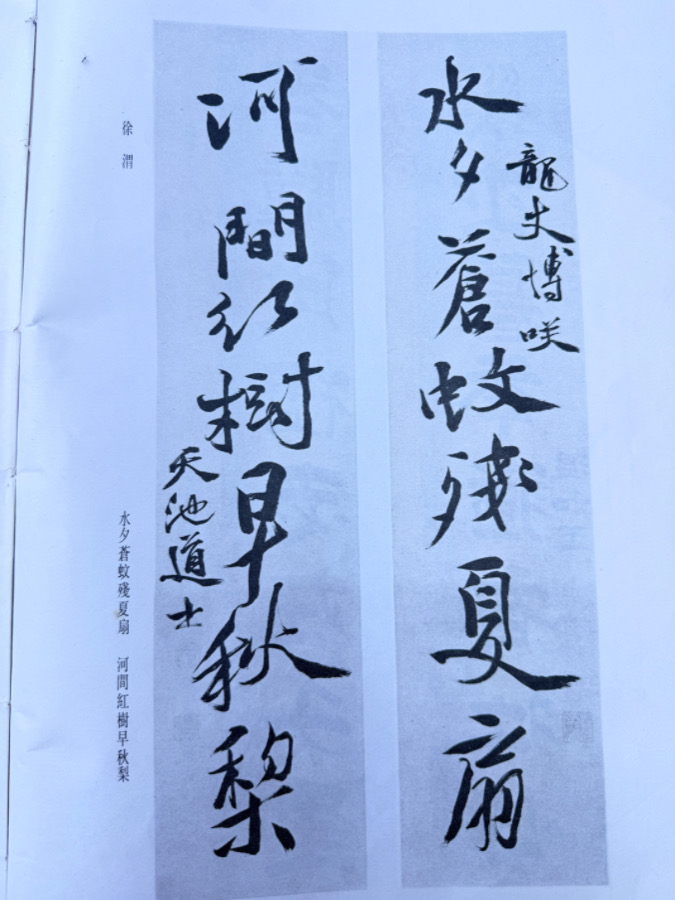 龍丈博咲
水夕蒼蚊殘夏扇
河間紅樹早秋梨
天池道士
徐渭
水夕蒼蚊殘夏扇　河間紅樹早秋梨